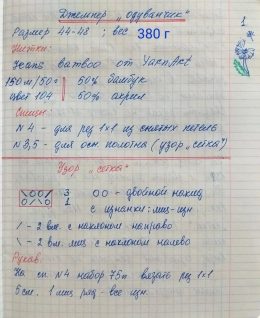 Джемпер "одуванчик"
1
Размер 44-48; вес 380 г
Нитки:
Jeans bamboo от YarnArt
150м/50г 50% бамбук
цвет 104 50% акрил
Спицы:
N4 - для рез 1х1 из снятых петель
N3,5 - для осн полотна (узор "сетка")
Узор "сетка"
\OO/ 3 OO - двойной накид
O/\O 1 с изнанки: лиц-изн
/ - 2 вм. с наклоном направо
\ - 2 вм. лиц с наклоном налево
Рукав.
На сп. N4 набор 75п вязать рез 1х1
5см. 1 лиц ряд - все изн.